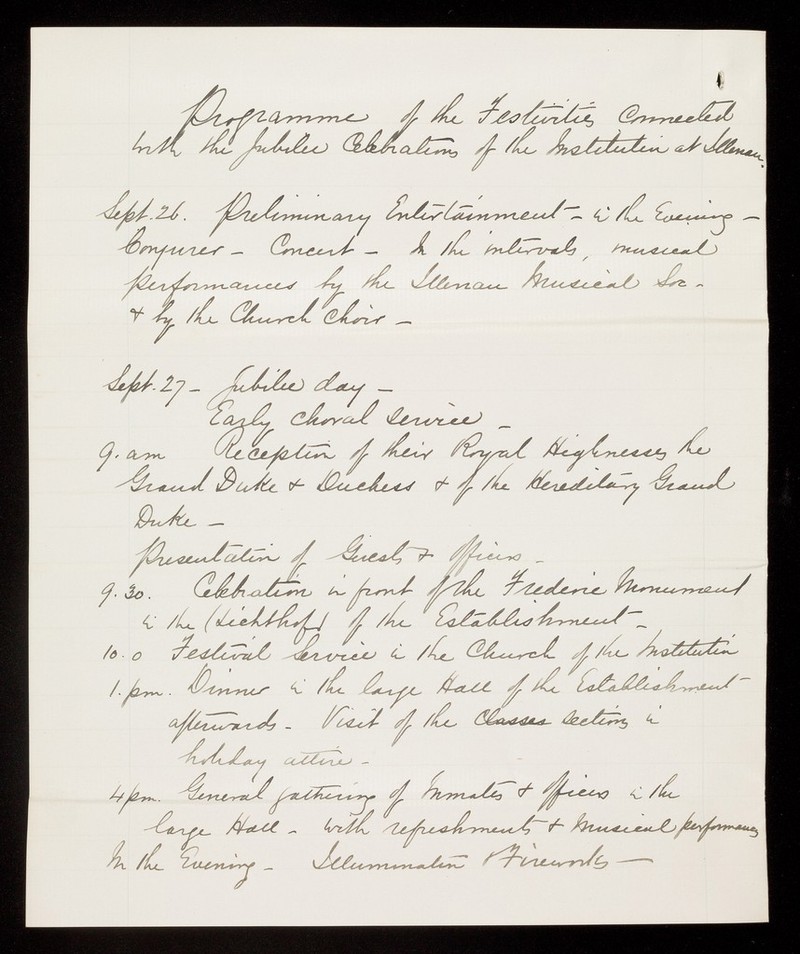 Programme of the Festivities Connected
with the Jubilee Celebrations of the Institution at Illenau.
Sept. 26. Preliminary Entertainment - in the Evening -
Conjurer - Concert - In the intervals, musical
performances by the Illenau Musical Soc -
& by the Church Choir -
Sept. 27 - Jubilee day -
Early choral service -
9. am Reception of their Royal Highnesses the
Grand Duke & Duchess & of the Hereditary Grand
Duke -
Presentation of Guests & officers -
9. 30. Celebration in front of the Frederic Monument
in the (Lichthof) of the Establishment -
10. 0 Festival Service in the Church of the Institution
1. pm. Dinner in the large Hall of the Establishment
afterwards - Visit of the classes sections in
holiday attire -
4 pm. General gathering of Inmates & officers in the
large Hall - with refreshments & musical performances
In the Evening - Illumination & Fireworks -